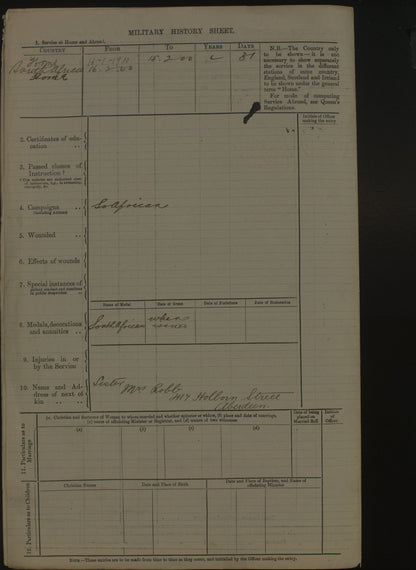 MILITARY HISTORY SHEET.
1. Service at Home and Abroad.
COUNTRY FROM TO YEARS DAYS
Home 15.2.00
South Africa 16.2.00
N.B.—The Country only to be shown—it is not necessary to show separately the service in the different stations of same country, England, Scotland and Ireland to be shown under the general term "Home."
For mode of computing Service Abroad, see Queen's Regulations.
Initials of Officer making the entry.
2. Certificates of education
3. Passed classes of Instruction
4. Campaigns including Actions
So African
5. Wounded
6. Effects of wounds
7. Special instances of gallant conduct and mentions in public despatches
Name of Medal Date of Grant Date of Forfeiture Date of Restoration
8. Medals, decorations and annuities
South African when issued
9. Injuries in or by the Service
10. Name and Address of next of kin
Sister
Mrs Robb
Holborn Street
Aberdeen
11. Particulars as to Marriage
(a. Christian and Surname of Woman to whom married and whether spinster or widow, (b) place and date of marriage,
(c) name of officiating Minister or Registrar, and (d) names of two witnesses.
Date of being placed on Married Roll
Initials of Officer
(a) (b) (c) (d)
12. Particulars as to Children
Christian Names
Date and Place of Birth
Date and Place of Baptism, and Name of officiating Minister
NOTE.—These entries are to be made from time to time as they occur, and initialled by the Officer making the entry.